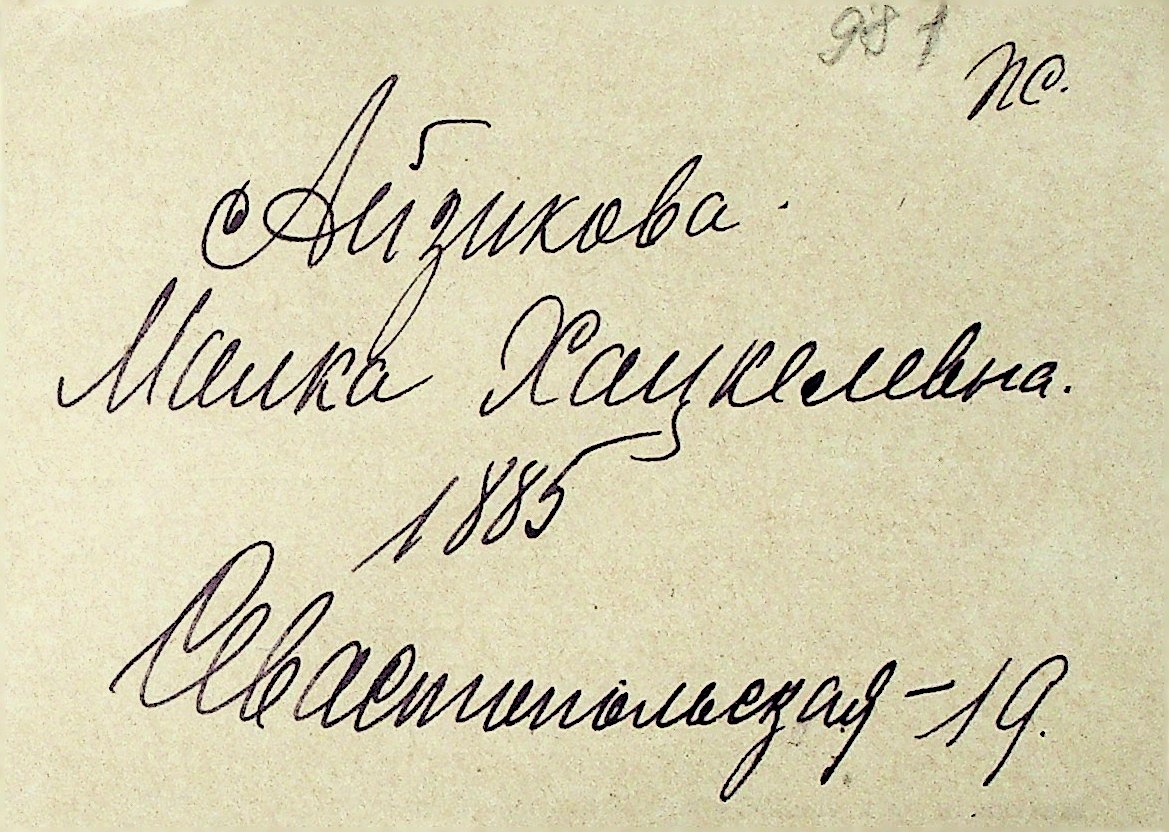 981
пс.
Айзикова.
Малка Хацкелевна.
1885
Севастопольская - 19.